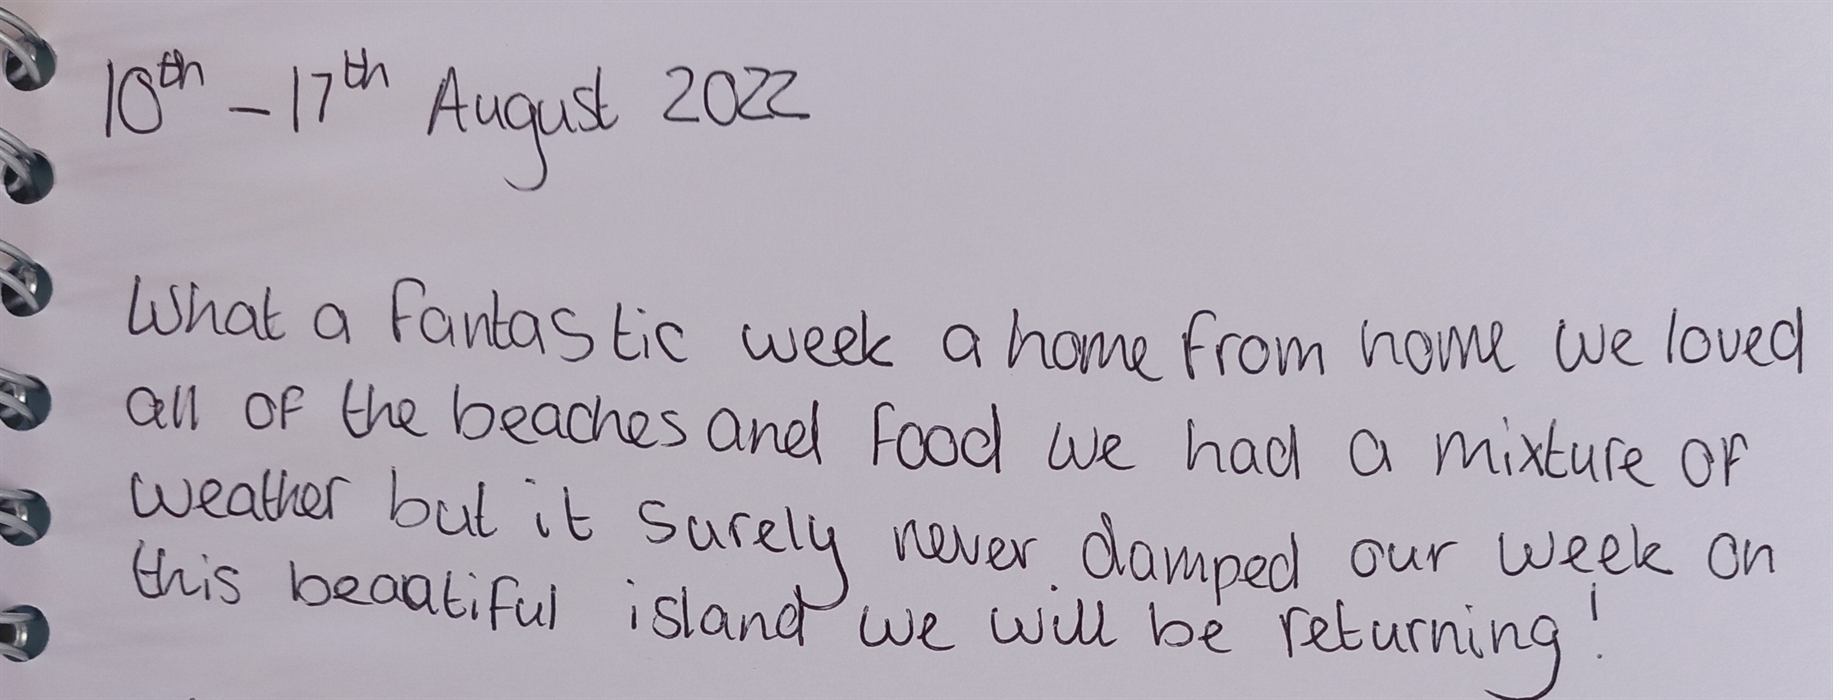 10th - 17th August 2022
What a fantastic week a home from home we loved
all of the beaches and food we had a mixture of
weather but it surely never damped our week on
this beaatiful island we will be returning!